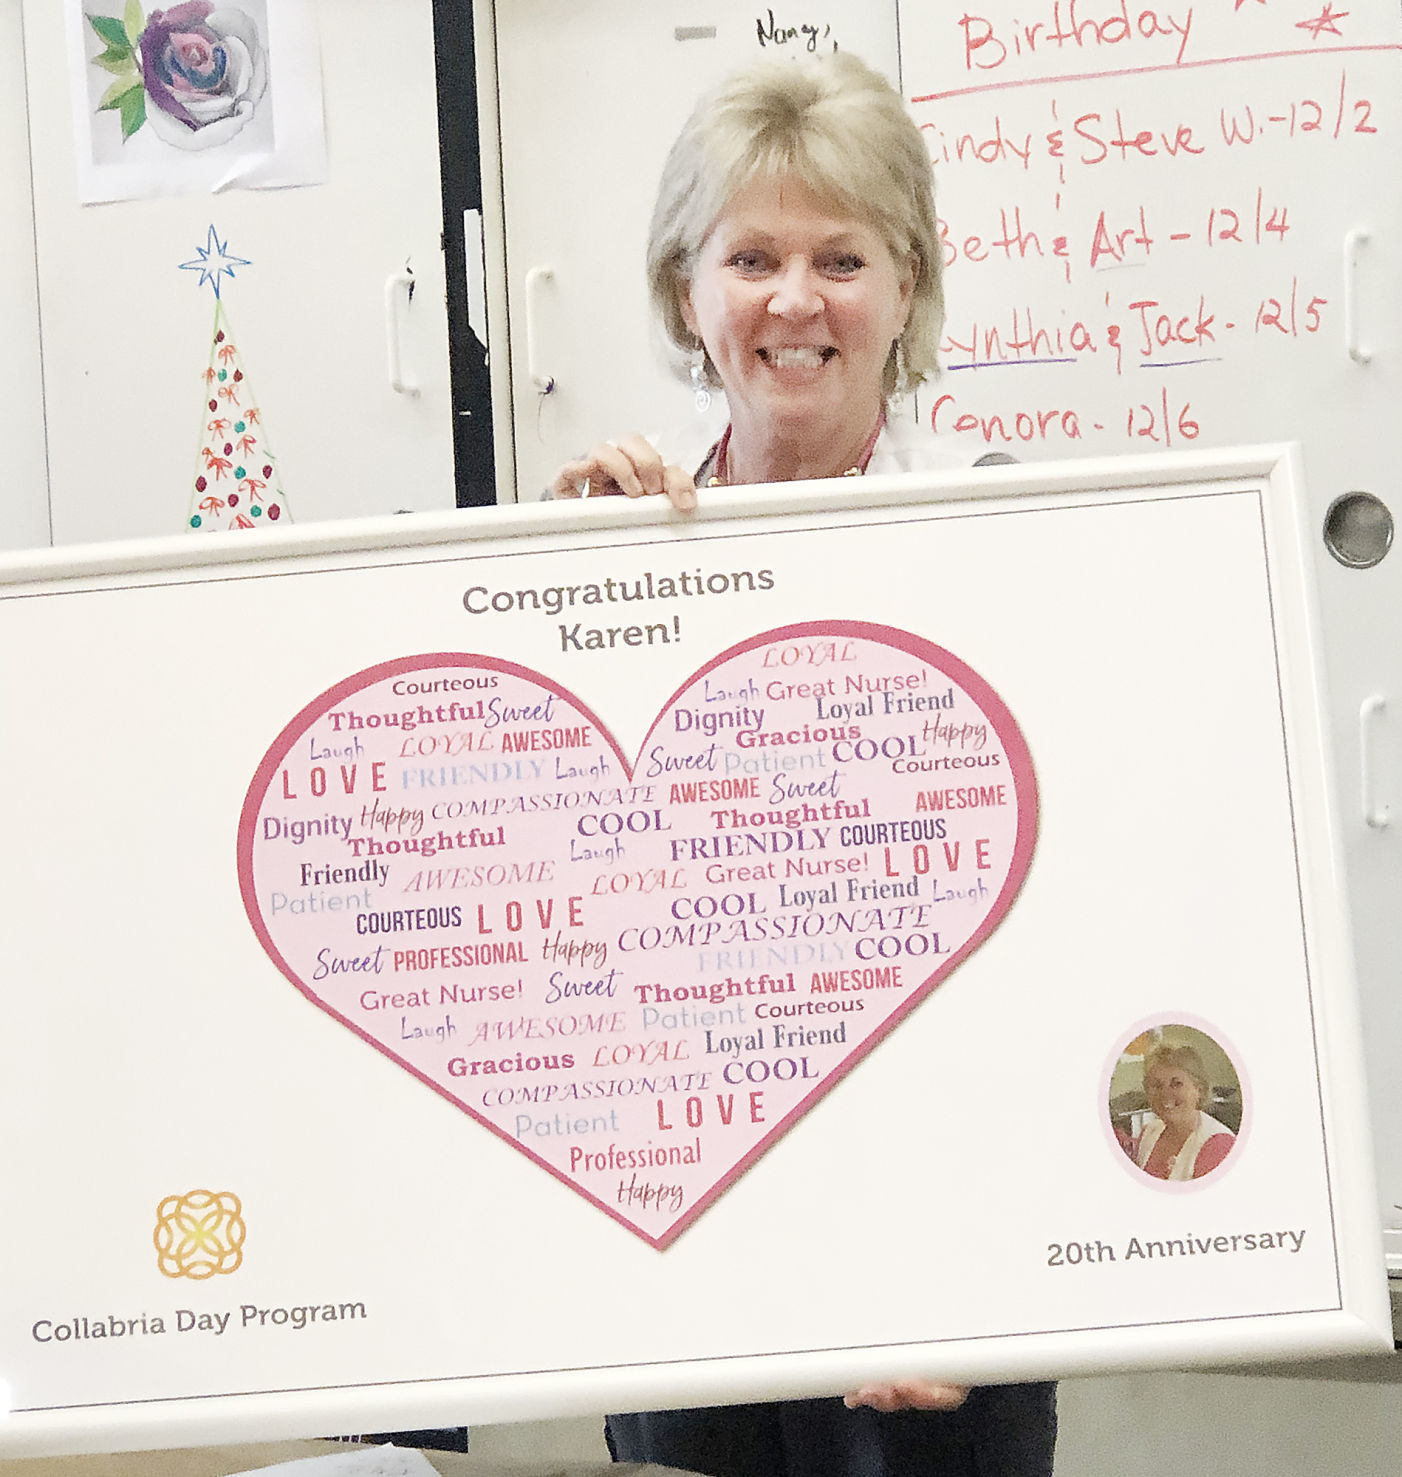 Nancy,
Birthday
Cindy & Steve W. - 12/2
Beth & Art - 12/4
Cynthia & Jack - 12/5
Conora - 12/6
Congratulations
Karen!
LOYAL
Courteous
Laugh Great Nurse!
Thoughtful Sweet
Dignity Loyal Friend
Laugh LOYAL AWESOME
Gracious Happy
LOVE FRIENDLY Laugh
Sweet Patient COOL
Courteous
Dignity Happy COMPASSIONATE AWESOME Sweet
AWESOME
Thoughtful COOL Thoughtful
Laugh FRIENDLY COURTEOUS
Friendly AWESOME LOYAL Great Nurse! LOVE
Patient
COURTEOUS LOVE COOL Loyal Friend Laugh
Sweet PROFESSIONAL Happy COMPASSIONATE
FRIENDLY COOL
Great Nurse! Sweet Thoughtful AWESOME
Laugh AWESOME Patient Courteous
Gracious LOYAL Loyal Friend
COMPASSIONATE COOL
Patient LOVE
Professional
Happy
20th Anniversary
Collabria Day Program